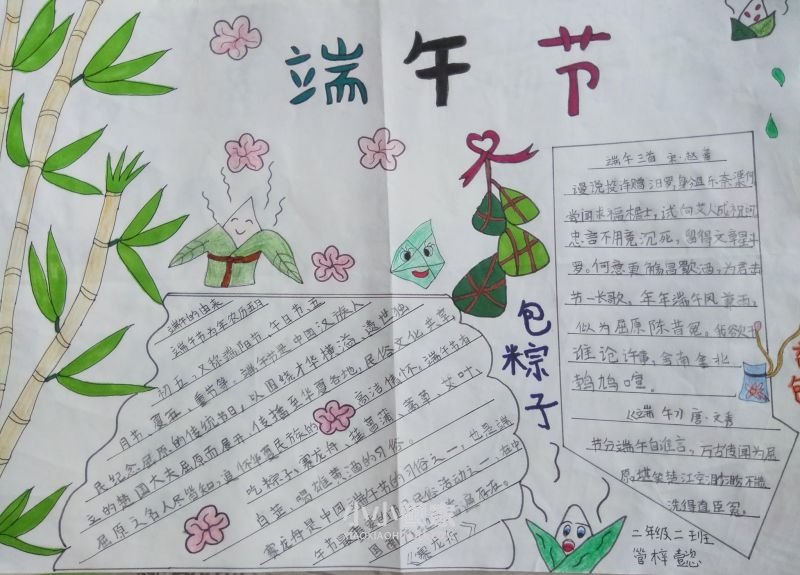 端午节
端午的由来
端午节为每年农历五月
初五,又称端阳节、午日节、五
月节、夏节、重节等。端午节是中国汉族人
民纪念屈原的传统节日,以围绕才华横溢、遗世独
立的楚国大夫屈原而展开,传播至华夏各地,民俗文化共享,
屈原之名人尽皆知,追怀华夏民族的高洁情怀。端午节有
吃粽子,赛龙舟、挂菖蒲、蒿草、艾叶、
白芷、喝雄黄酒的习俗。
赛龙舟是中国端午节的习俗之一,也是端
午节最重要的民俗活动之一,在中
《赛龙舟》
包粽子
端午三首 宋·赵蕃
谩说投诗赠汨罗,身沮乐奈渠何
尝闻求福木居士,试向艾人成祝呵
忠言不用竟沉死,留得文章星斗
罗。何意更觞昌歜酒,为君击
节一长歌。年年端午风兼雨,
似为屈原陈昔冤。我欲于
谁论许事,舍南舍北
鹁鸠喧。
《端午》唐·文秀
节分端午自谁言,万古传闻为屈
原。堪笑楚江空渺渺不能
洗得直臣冤。
香包
二年级二班
管梓懿